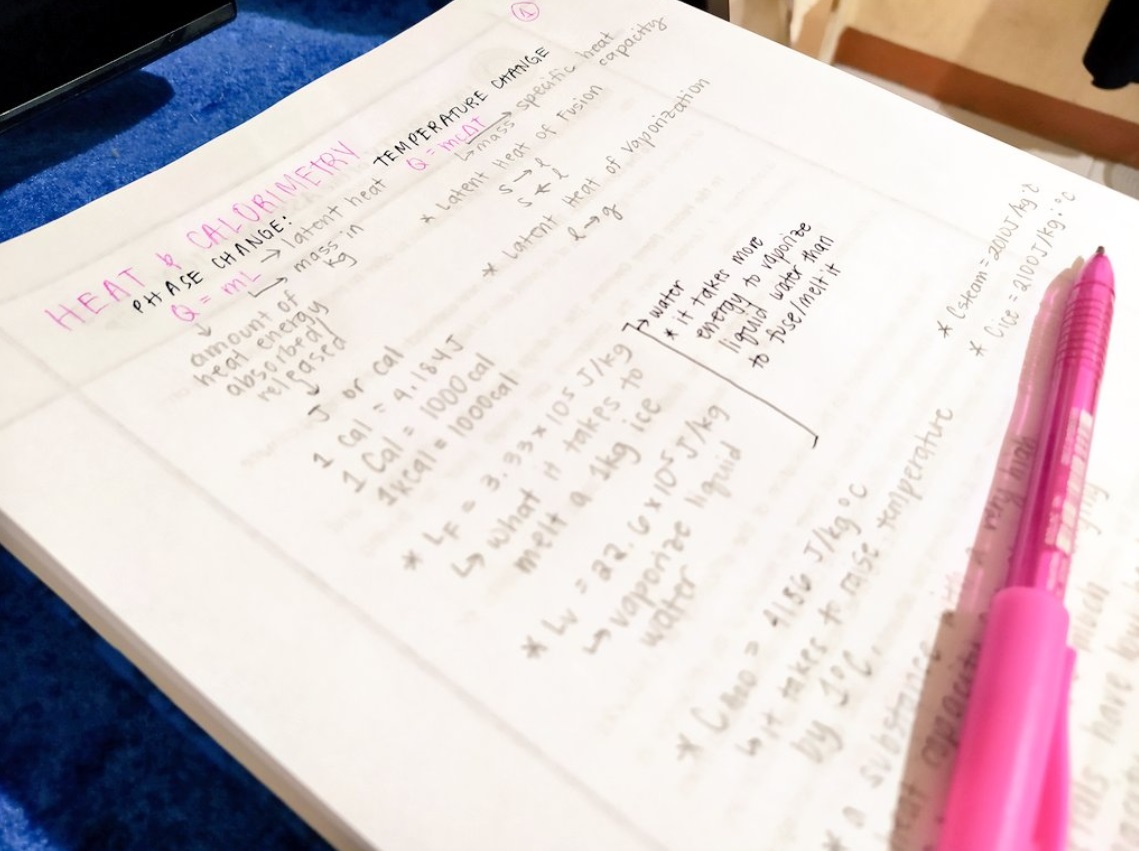 1
HEAT & CALORIMETRY
PHASE CHANGE:
Q = mL → latent heat
↳ mass in
kg
↓
amount of
heat energy
absorbed/
released
↓
J or cal
1 cal = 4.184 J
1 Cal = 1000 cal
1 kcal = 1000 cal
TEMPERATURE CHANGE
Q = mcΔT
→ specific heat
capacity
↳ mass
* Latent Heat of Fusion
s → l
s ← l
* Latent Heat of Vaporization
l → g
* LF = 3.33 x 10⁵ J/kg
↳ what it takes to
melt a 1kg ice
* Lv = 22.6 x 10⁵ J/kg
↳ vaporize liquid
water
→ water
* it takes more
energy to vaporize
liquid water than
to fuse/melt it
* Csteam = 2010 J/kg·°C
* Cice = 2100 J/kg·°C
* CH2O = 4186 J/kg°C
↳ it takes t raise temperature
by 1°C
* a substance a very high
heat capacity
have